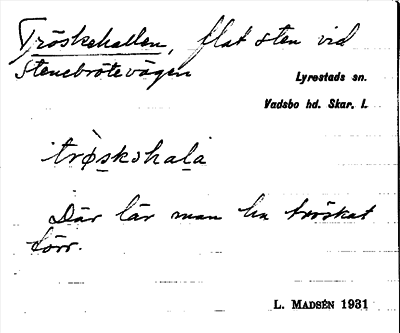 Tröskehallen, flat sten vid
Stenebrötevägen
Lyrestads sn.
Vadsbo hd. Skar. l.
trø̀skəhala
Där lär man ha tröskat
förr.
L. MADSÉN 1931